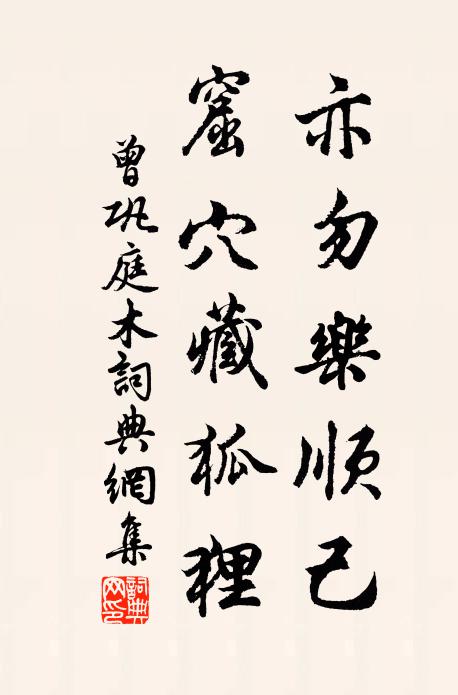 亦勿樂順己
窟穴藏狐狸
曾巩庭木詞典網集
詞典网印